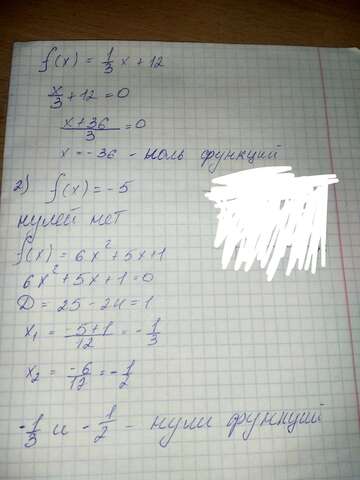 f(x) = 1/3 x + 12
x/3 + 12 = 0
(x + 36)/3 = 0
x = -36 - ноль функций
2) f(x) = -5
нулей нет
f(x) = 6x² + 5x + 1
6x² + 5x + 1 = 0
D = 25 - 24 = 1
x₁ = (-5+1)/12 = -1/3
x₂ = -6/12 = -1/2
-1/3 и -1/2 - нули функций